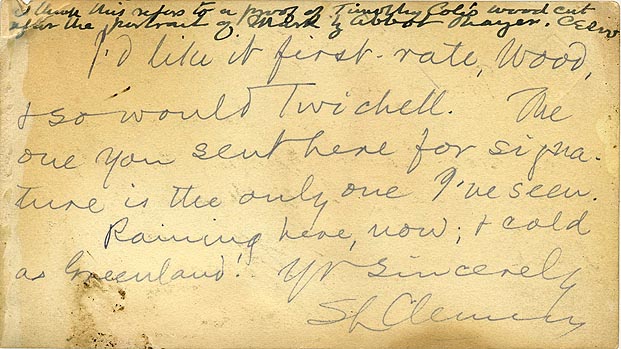 I think this refers to a proof of Timothy Cole's wood cut
after the portrait of Mark by Abbot Thayer. CESW
I'd like it first-rate, Wood,
& so would Twichell. The
one you sent here for signa-
ture is the only one I've seen.
Raining here, now; & cold
as Greenland. Yr Sincerely
SL Clemens